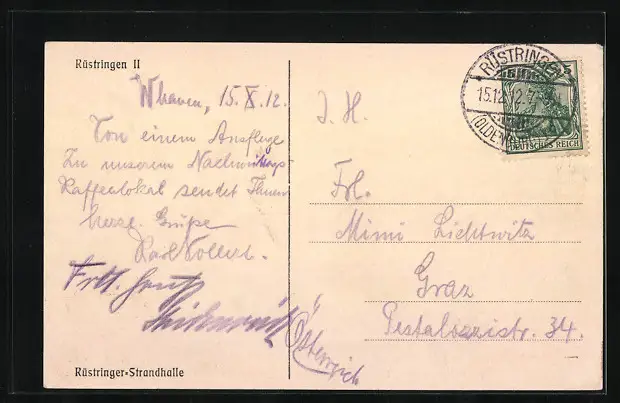 Rüstringen II
W'haven, 15.X.12.
Von einem Ausfluge
Zu unserem Nachmittags-
Kaffeelokal sendet Ihnen
herzl. Grüße
Karl
Frdl. Gruß
Rüstringer-Strandhalle
RÜSTRINGEN
15.12.12.7
(OLDENB
DEUTSCHES REICH
I. H.
Frl.
Mimi Lichtwitz
Graz
Pestalozzistr. 34.
Österreich